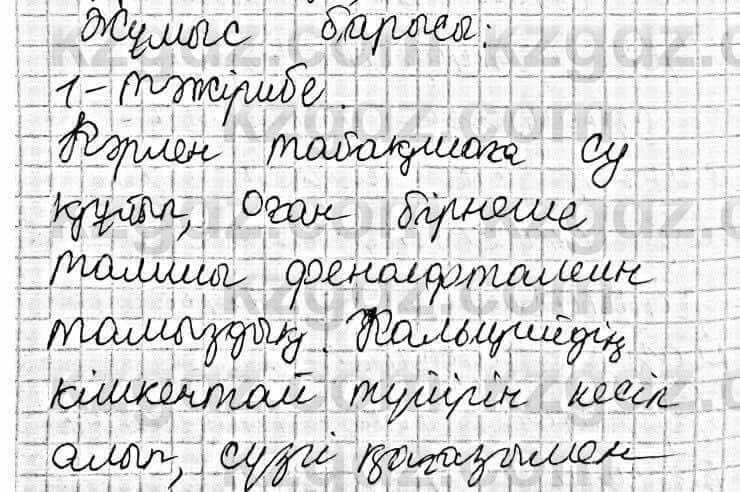 Жұмыс барысы:
1-тәжірибе.
Кәрлен табақшаға су
құйып, Оған бірнеше
тамшы фенолфталеин
тамыздық. Кальцийдің
кішкентай түйірін кесіп
алып, сүзгі қағазымен